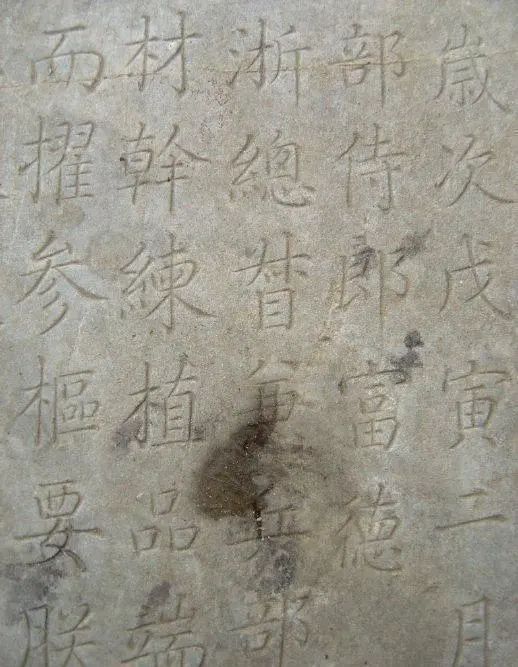 歲次戊寅二月
部侍郎富德
浙總督兼兵部
材幹練植品端
而擢参樞要朕